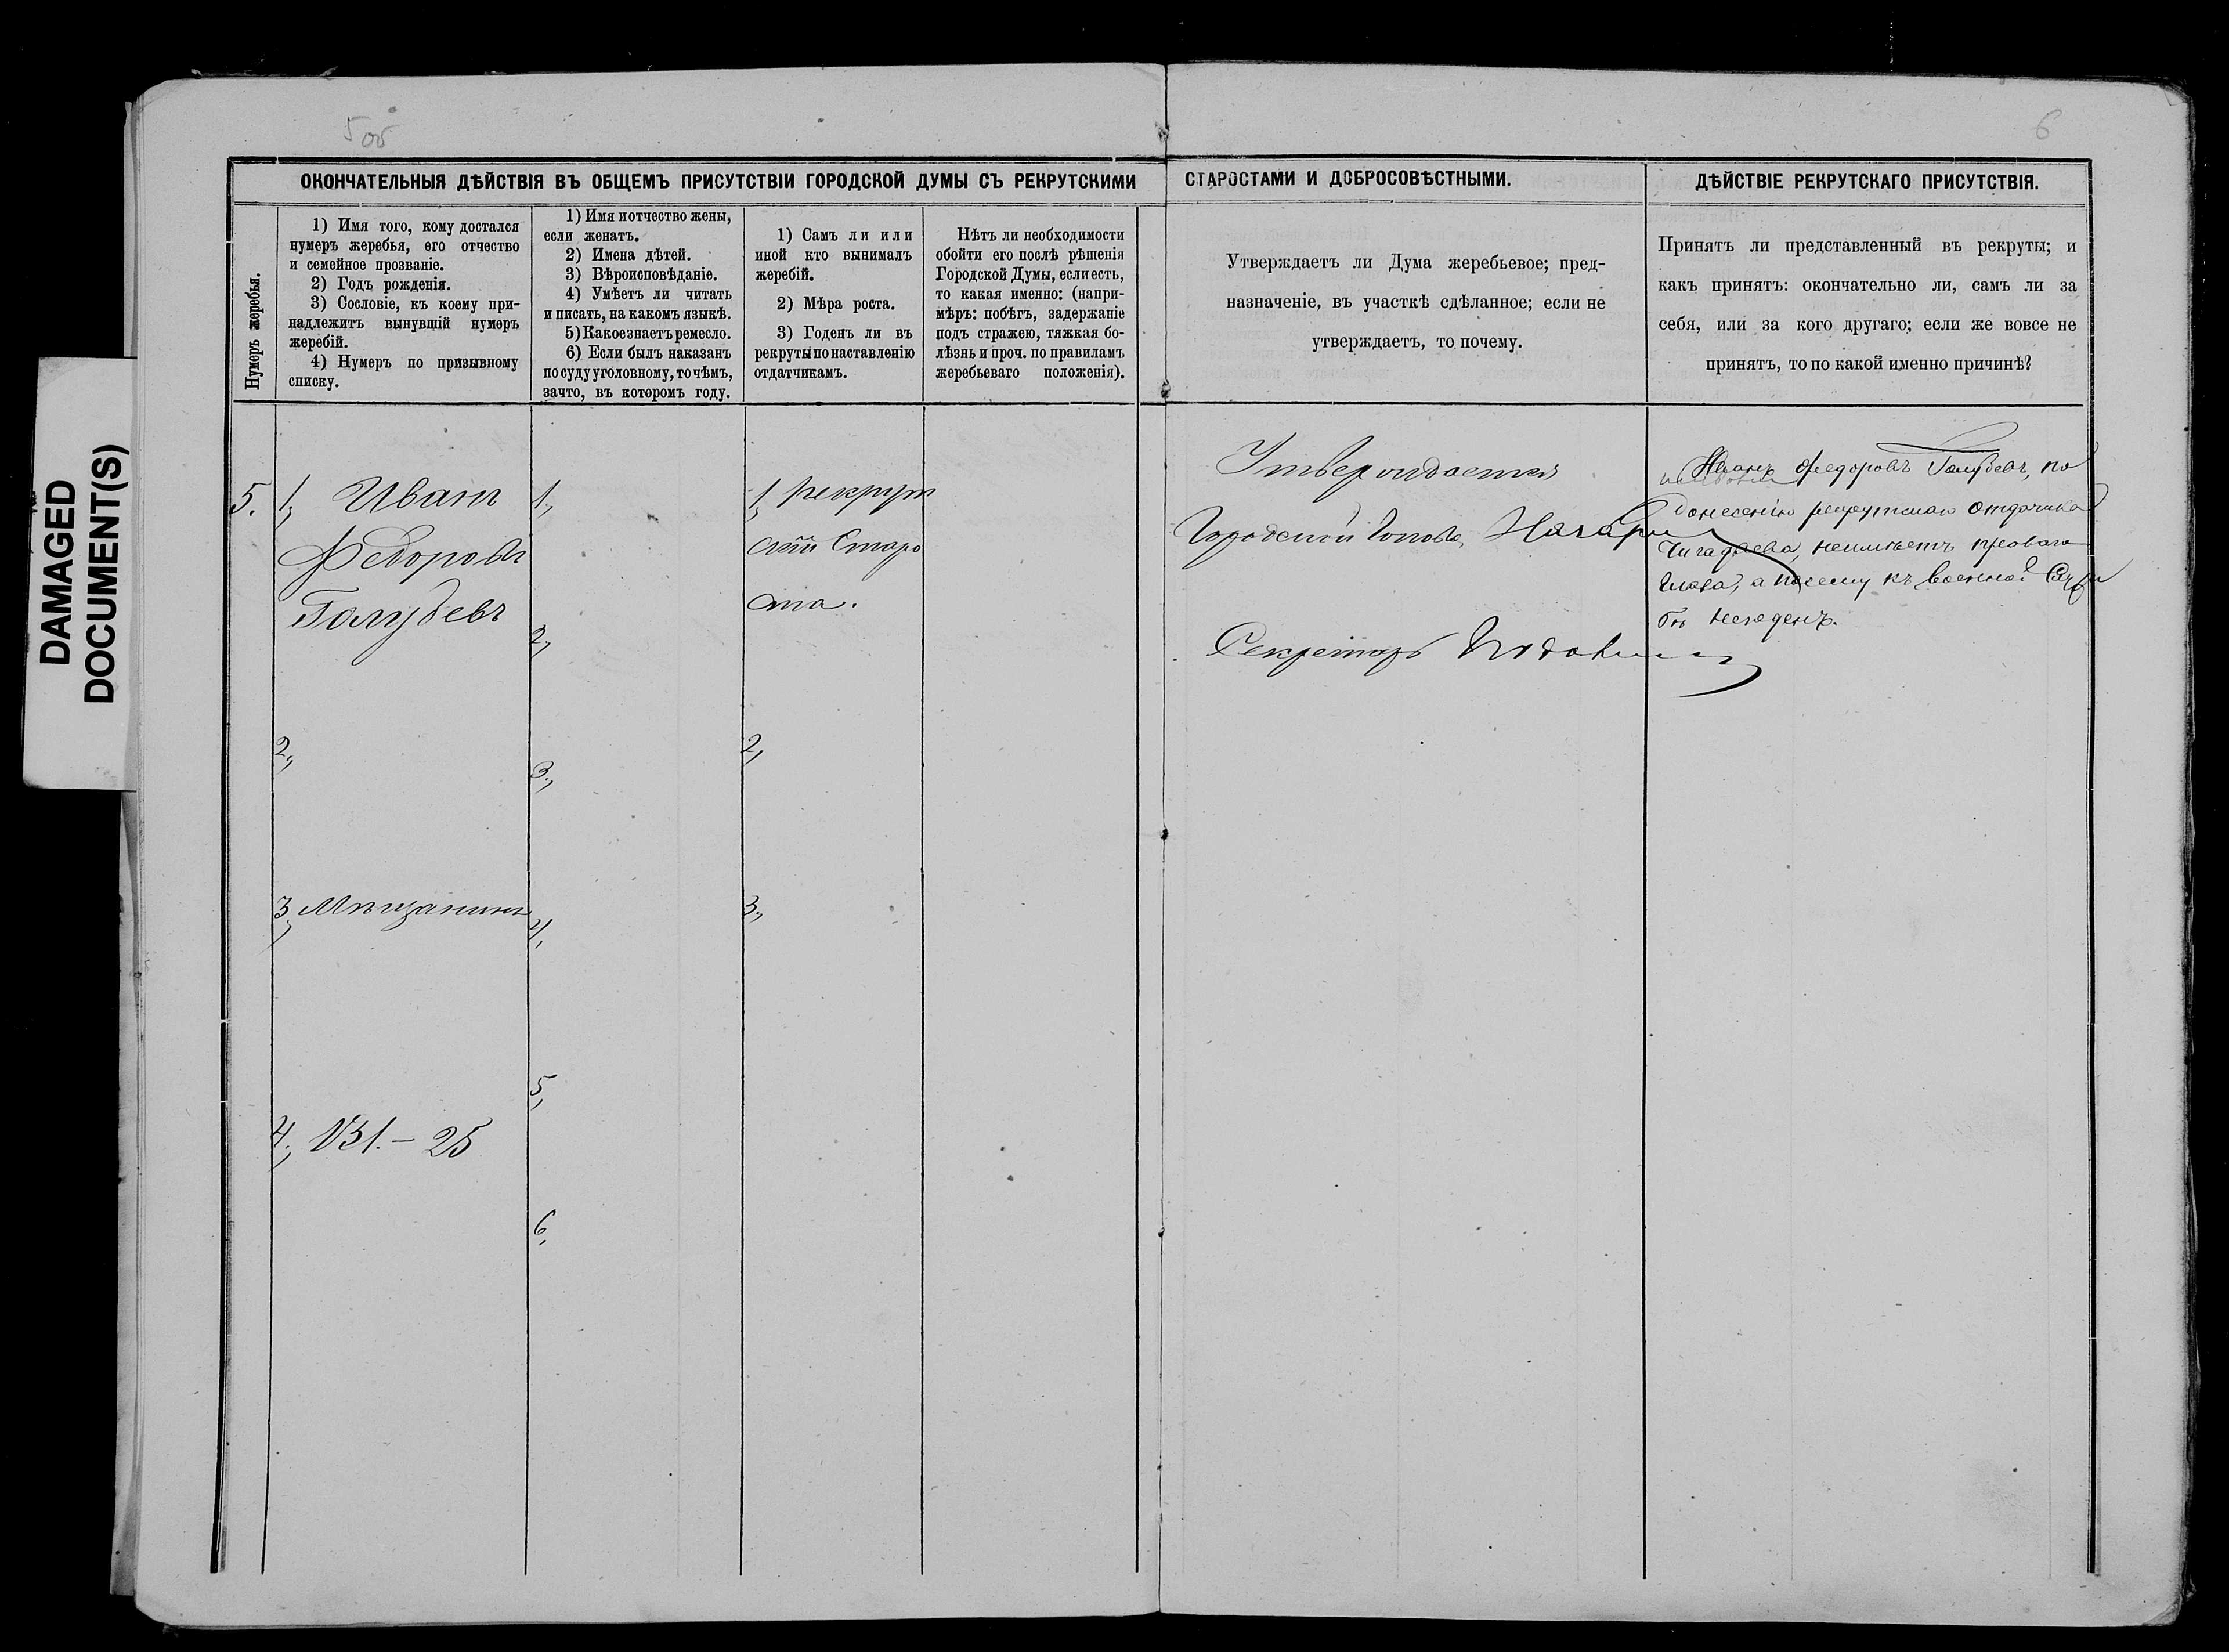 5 об
6
DAMAGED
DOCUMENT(S)
ОКОНЧАТЕЛЬНЫЯ ДѢЙСТВІЯ ВЪ ОБЩЕМЪ ПРИСУТСТВІИ ГОРОДСКОЙ ДУМЫ СЪ РЕКРУТСКИМИ СТАРОСТАМИ И ДОБРОСОВѢСТНЫМИ.
ДѢЙСТВІЕ РЕКРУТСКАГО ПРИСУТСТВІЯ.
Нумеръ жеребья.
1) Имя того, кому достался
нумеръ жеребья, его отчество
и семейное прозваніе.
2) Годъ рожденія.
3) Сословіе, къ коему при-
надлежитъ вынувшій нумеръ
жеребій.
4) Нумеръ по призывному
списку.
1) Имя и отчество жены,
если женатъ.
2) Имена дѣтей.
3) Вѣроисповѣданіе.
4) Умѣетъ ли читать
и писать, на какомъ языкѣ.
5) Какое знаетъ ремесло.
6) Если былъ наказанъ
по суду уголовному, то чѣмъ,
за что, въ которомъ году.
1) Самъ ли или
иной кто вынималъ
жеребій.
2) Мѣра роста.
3) Годенъ ли въ
рекруты по наставленію
отдатчикамъ.
Нѣтъ ли необходимости
обойти его послѣ рѣшенія
Городской Думы, если есть,
то какая именно: (напри-
мѣръ: побѣгъ, задержаніе
подъ стражею, тяжкая бо-
лѣзнь и проч. по правиламъ
жеребьеваго положенія).
Утверждаетъ ли Дума жеребьевое; пред-
назначеніе, въ участкѣ сдѣланное; если не
утверждаетъ, то почему.
Принятъ ли представленный въ рекруты; и
какъ принятъ: окончательно ли, самъ ли за
себя, или за кого другаго; если же вовсе не
принятъ, то по какой именно причинѣ?
5.
1, Иванъ
Федоровъ
Голубевъ
2,
3, Мѣщанинъ
4, 131. – 25
1,
2,
3,
4,
5,
6,
1, рекрут
скій Старо
ста.
2,
3,
Утверждается
Городской Голова
Секретарь
Иванъ Федоровъ Голубевъ, по
донесенію рекрутскаго отдатчика
неимѣетъ праваго
глаза, а посему къ военной Служ
бѣ негоденъ.